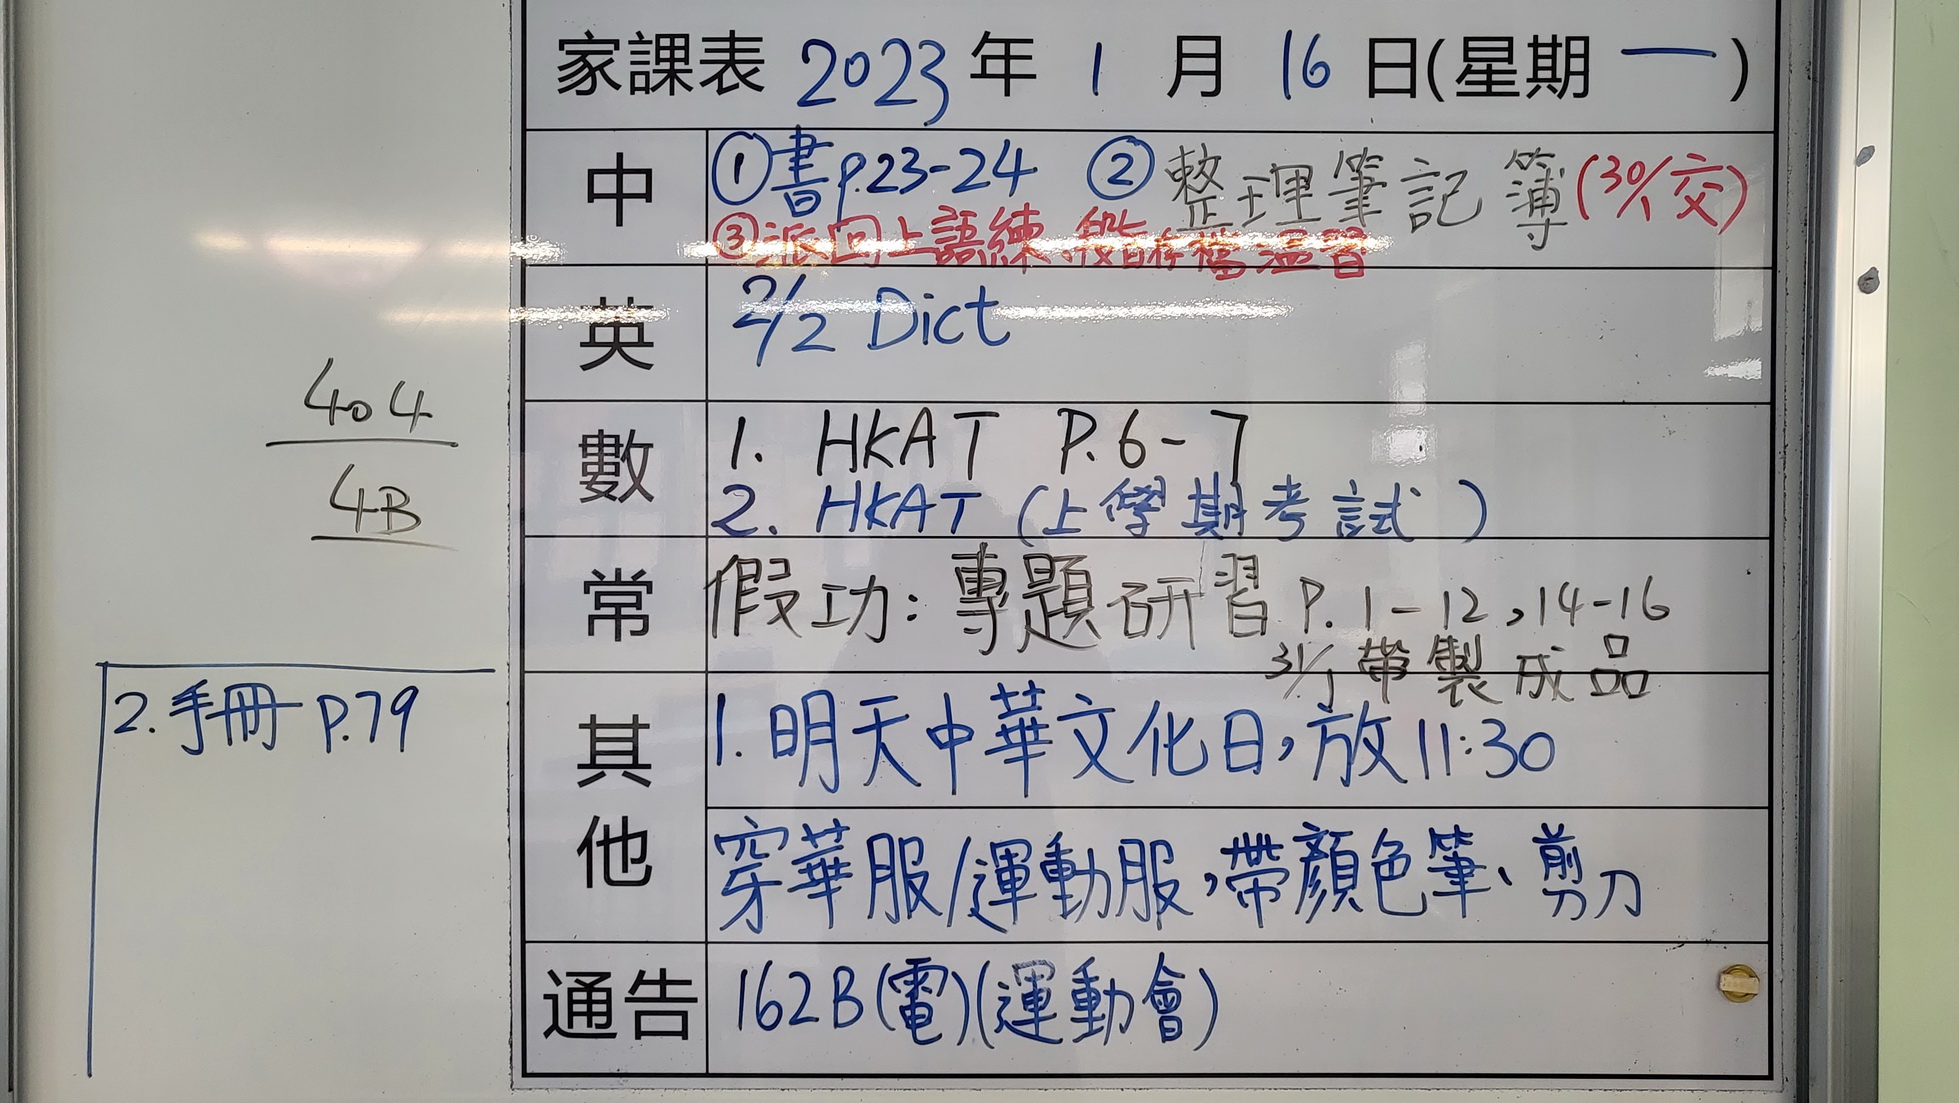 家課表 2023年 1 月 16 日(星期 一 )
中 ①書p.23-24 ②整理筆記簿(30/1交)
③派回上語練、段皆存檔溫習
英 2/2 Dict
404
4B
數 1. HKAT P.6-7
2. HKAT (上學期考試)
常 假功:專題研習 P.1-12,14-16
31/1帶製成品
2.手冊 P.79
其他 1.明天中華文化日,放11:30
穿華服/運動服,帶顏色筆、剪刀
通告 162B(電)(運動會)